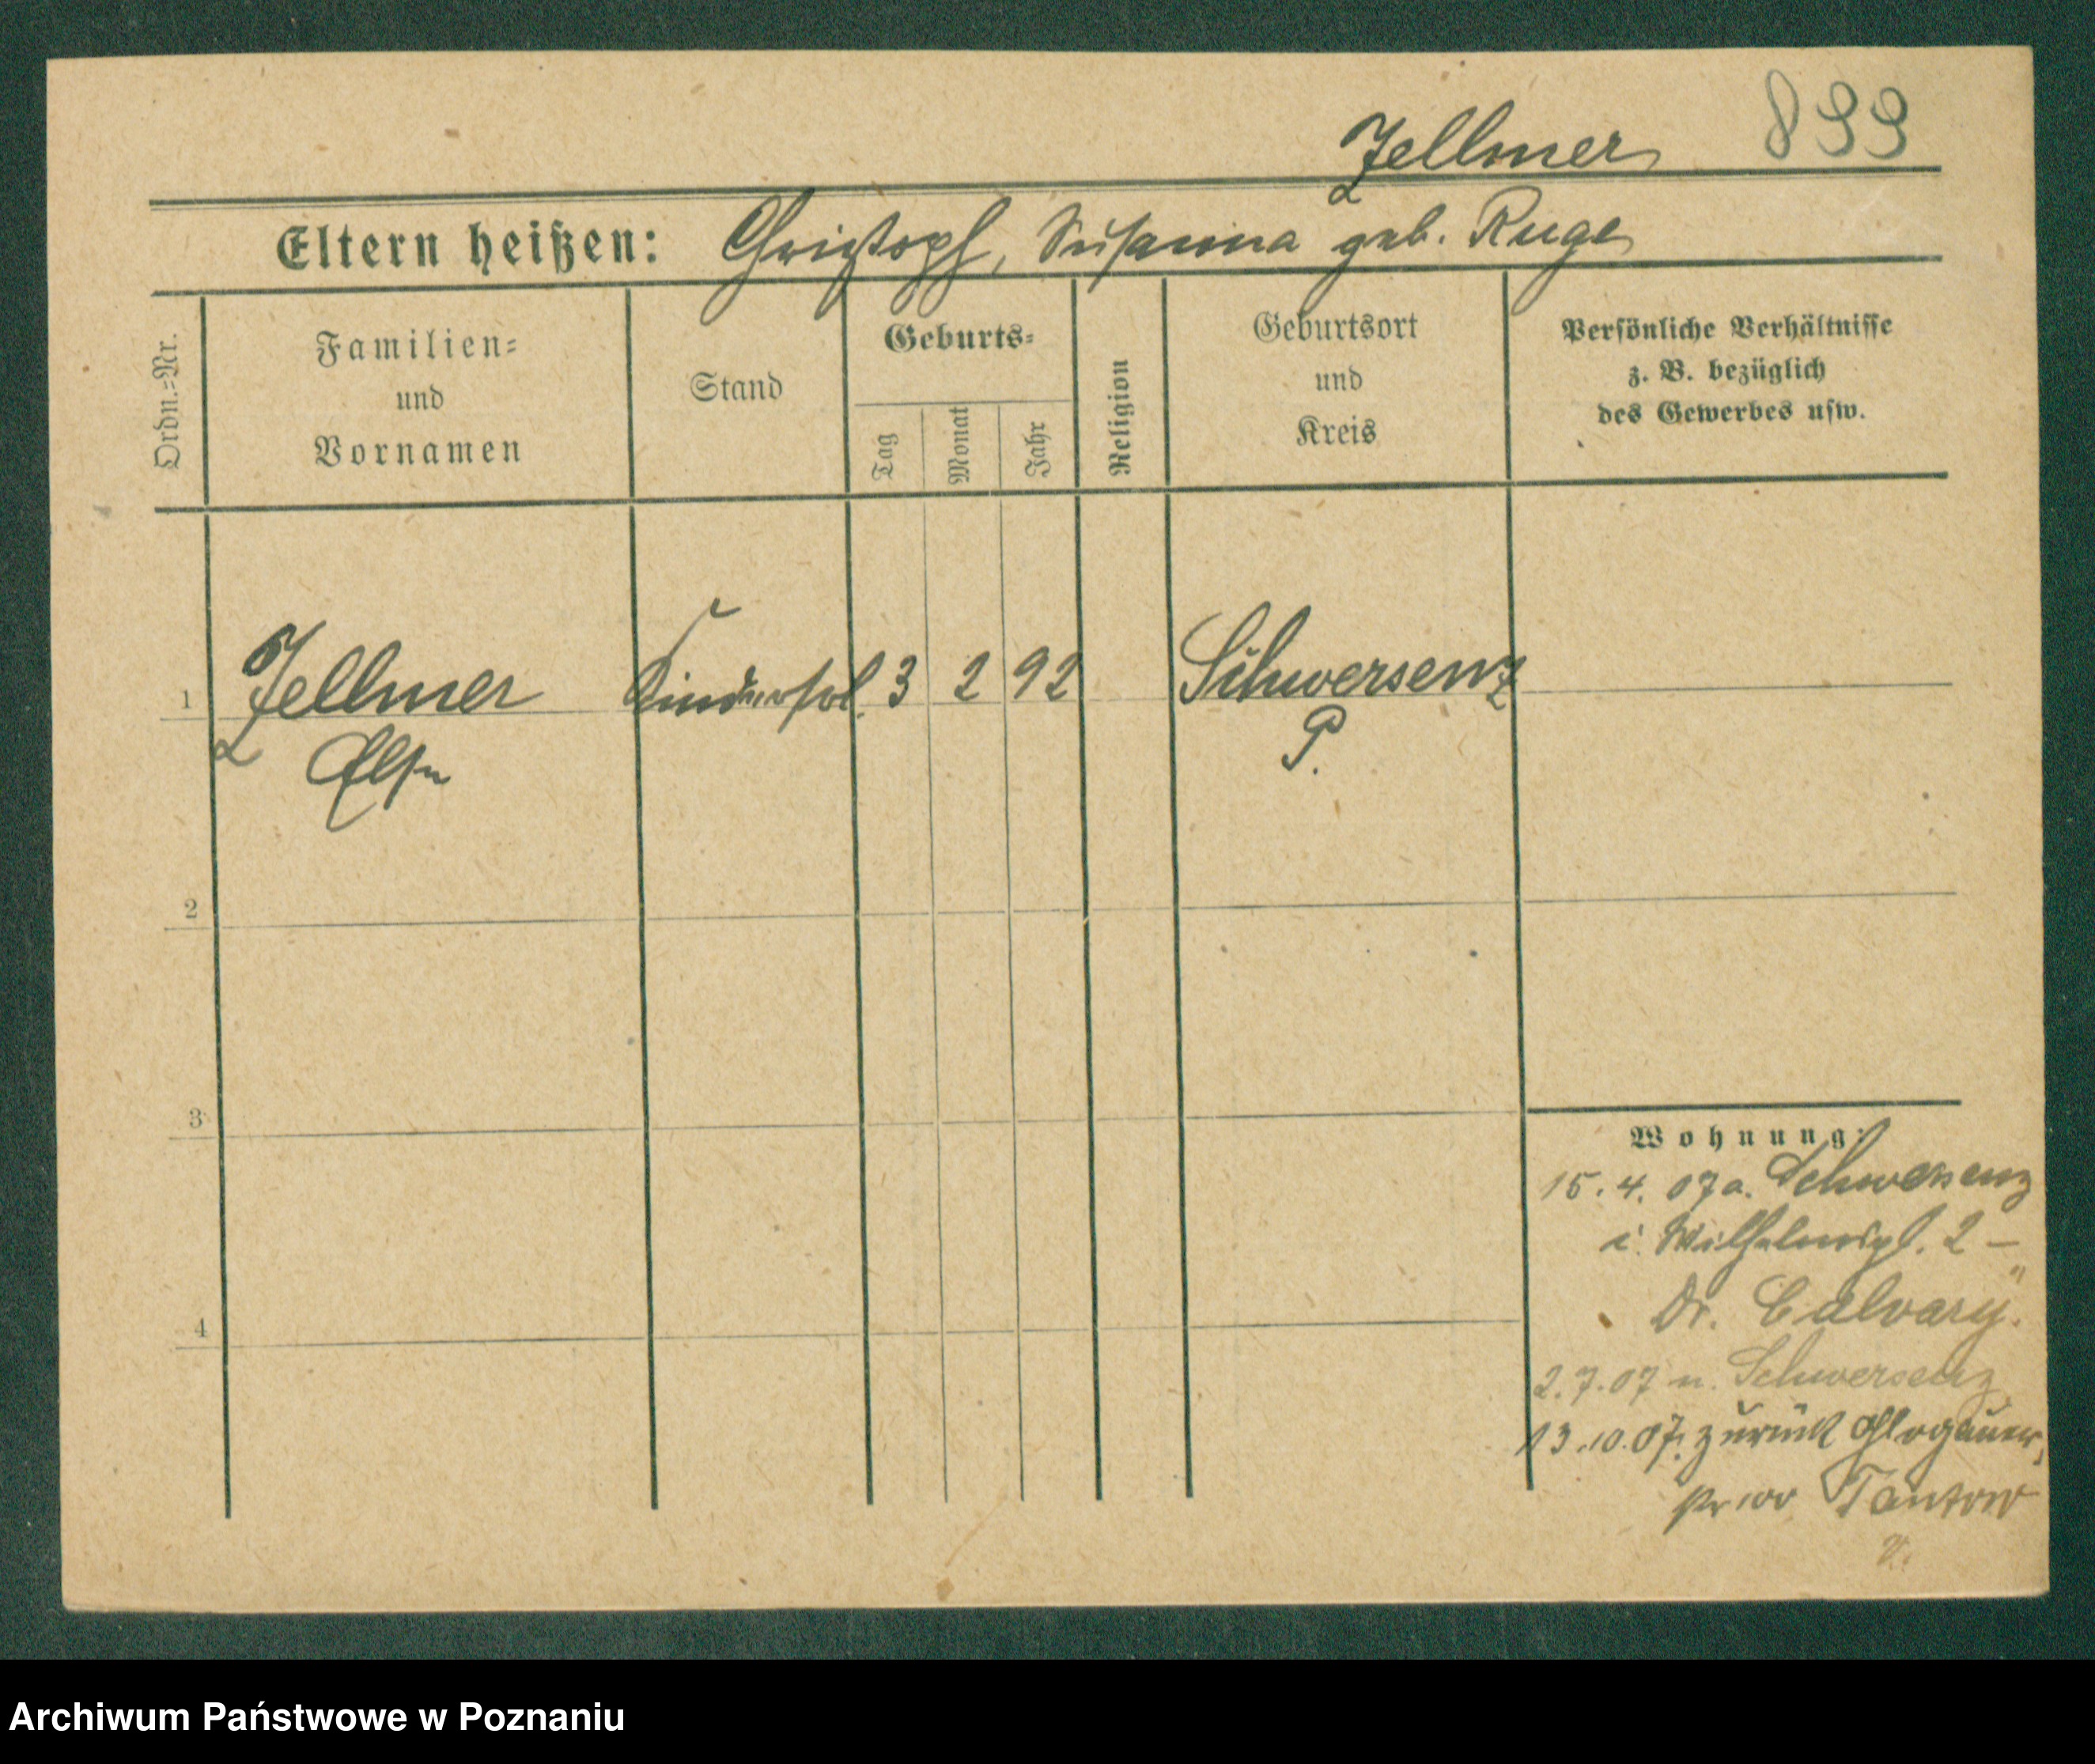 Zellmer 899
Eltern heißen: Christoph, Susanna geb. Ruge
Ordn.=Nr.
Familien=
und
Vornamen
Stand
Geburts=
Tag
Monat
Jahr
Religion
Geburtsort
und
Kreis
Persönliche Verhältnisse
z. B. bezüglich
des Gewerbes usw.
1 Zellmer Kinderfrl. 3 2 92 Schwersenz
Else P.
2
3
4
Wohnung:
15. 4. 07 a. Schwersenz
i. Wilhelmspl. 2 –
Dr. Calvary.
2. 7. 07 n. Schwersenz
13. 10. 07. zurück Glogauer
Tantow
Archiwum Państwowe w Poznaniu